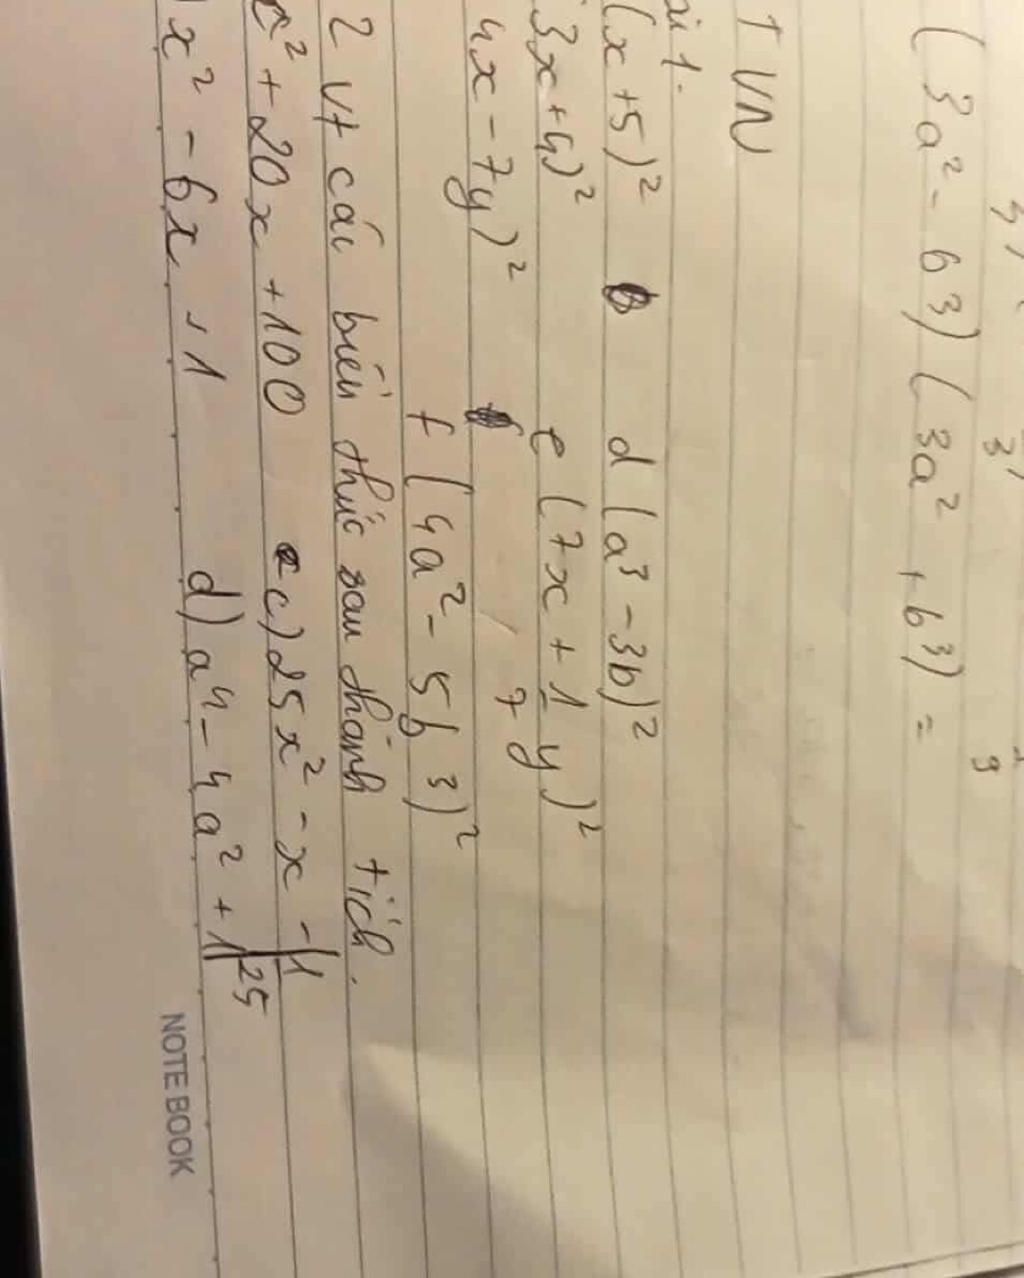 (3a² - b³)(3a² + b³) =
TVN
ài 1.
(x + 5)² d (a³ - 3b)²
3x + 4)² e (7x + 1/7 y)²
4x - 7y)²
f (4a² - 5b³)²
2 vt các biểu thức sau thành tích.
x² + 20x + 100 c) 25x² - x - 1
x² - 6x + 1 d) a⁴ - 4a² + 1 25
NOTEBOOK